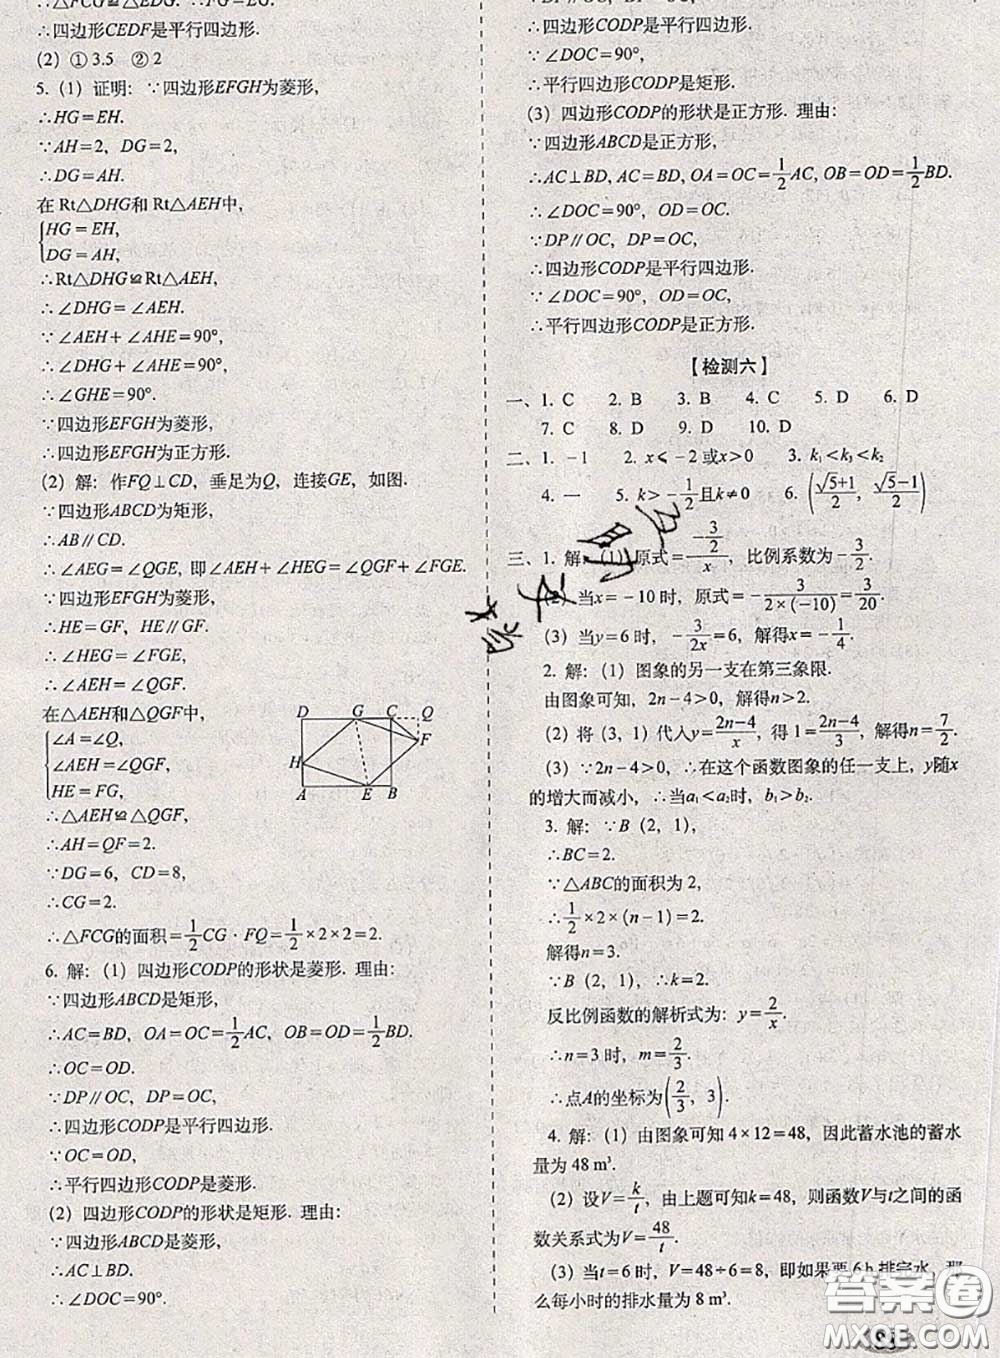 ∴△FCG≌△EDG. ∴FG=EG.
∴四边形CEDF是平行四边形.
(2) ① 3.5 ② 2
5. (1) 证明: ∵四边形EFGH为菱形,
∴HG=EH.
∵AH=2, DG=2,
∴DG=AH.
在 Rt△DHG和 Rt△AEH中,
{HG=EH,
DG=AH,
∴Rt△DHG≌Rt△AEH,
∴∠DHG=∠AEH.
∵∠AEH+∠AHE=90°,
∴∠DHG+∠AHE=90°.
∴∠GHE=90°.
∵四边形EFGH为菱形,
∴四边形EFGH为正方形.
(2) 解: 作FQ⊥CD, 垂足为Q, 连接GE, 如图.
∵四边形ABCD为矩形,
∴AB∥CD.
∴∠AEG=∠QGE, 即∠AEH+∠HEG=∠QGF+∠FGE.
∵四边形EFGH为菱形,
∴HE=GF, HE∥GF.
∴∠HEG=∠FGE,
∴∠AEH=∠QGF.
在△AEH和△QGF中,
{∠A=∠Q,
∠AEH=∠QGF,
HE=FG,
D G C Q
F
H
A E B
∴△AEH≌△QGF.
∴AH=QF=2.
∵DG=6, CD=8,
∴CG=2.
∴△FCG的面积=1/2CG·FQ=1/2×2×2=2.
6. 解: (1) 四边形CODP的形状是菱形. 理由:
∵四边形ABCD是矩形,
∴AC=BD, OA=OC=1/2AC, OB=OD=1/2BD.
∴OC=OD.
∵DP∥OC, DP=OC,
∴四边形CODP是平行四边形.
∵OC=OD,
∴平行四边形CODP是菱形.
(2) 四边形CODP的形状是矩形. 理由:
∵四边形ABCD是菱形,
∴AC⊥BD.
∴∠DOC=90°.
∵DP∥OC, DP=OC,
∴四边形CODP是平行四边形.
∵∠DOC=90°,
∴平行四边形CODP是矩形.
(3) 四边形CODP的形状是正方形. 理由:
∵四边形ABCD是正方形,
∴AC⊥BD, AC=BD, OA=OC=1/2AC, OB=OD=1/2BD.
∴∠DOC=90°, OD=OC.
∵DP∥OC, DP=OC,
∴四边形CODP是平行四边形.
∵∠DOC=90°, OD=OC,
∴平行四边形CODP是正方形.
【检测六】
一、1. C 2. B 3. B 4. C 5. D 6. D
7. C 8. D 9. D 10. D
二、1. -1 2. x≤-2或x>0 3. k₁<k₃<k₂
4. 一 5. k>-1/2且k≠0 6. ((√5+1)/2, (√5-1)/2)
三、1. 解: (1) 原式=(-3/2)/x, 比例系数为-3/2.
(2) 当x=-10时, 原式=-3/(2×(-10))=3/20.
(3) 当y=6时, -3/2x=6, 解得x=-1/4.
2. 解: (1) 图象的另一支在第三象限.
由图象可知, 2n-4>0, 解得n>2.
(2) 将 (3, 1) 代入y=(2n-4)/x, 得 1=(2n-4)/3, 解得n=7/2.
(3) ∵2n-4>0, ∴在这个函数图象的任一支上, y随x
的增大而减小, ∴当a₁<a₂时, b₁>b₂.
3. 解: ∵B (2, 1),
∴BC=2.
∵△ABC的面积为 2,
∴1/2×2×(n-1)=2.
解得n=3.
∵B (2, 1), ∴k=2.
反比例函数的解析式为: y=2/x.
∴n=3时, m=2/3.
∴点A的坐标为(2/3, 3).
4. 解: (1) 由图象可知 4×12=48, 因此蓄水池的蓄水
量为 48 m³.
(2) 设V=k/t, 由上题可知k=48, 则函数V与t之间的函
数关系式为V=48/t.
(3) 当t=6时, V=48÷6=8, 即如果要 6 h 排完水, 那
么每小时的排水量为 8 m³.
答案圈
MXQE.COM